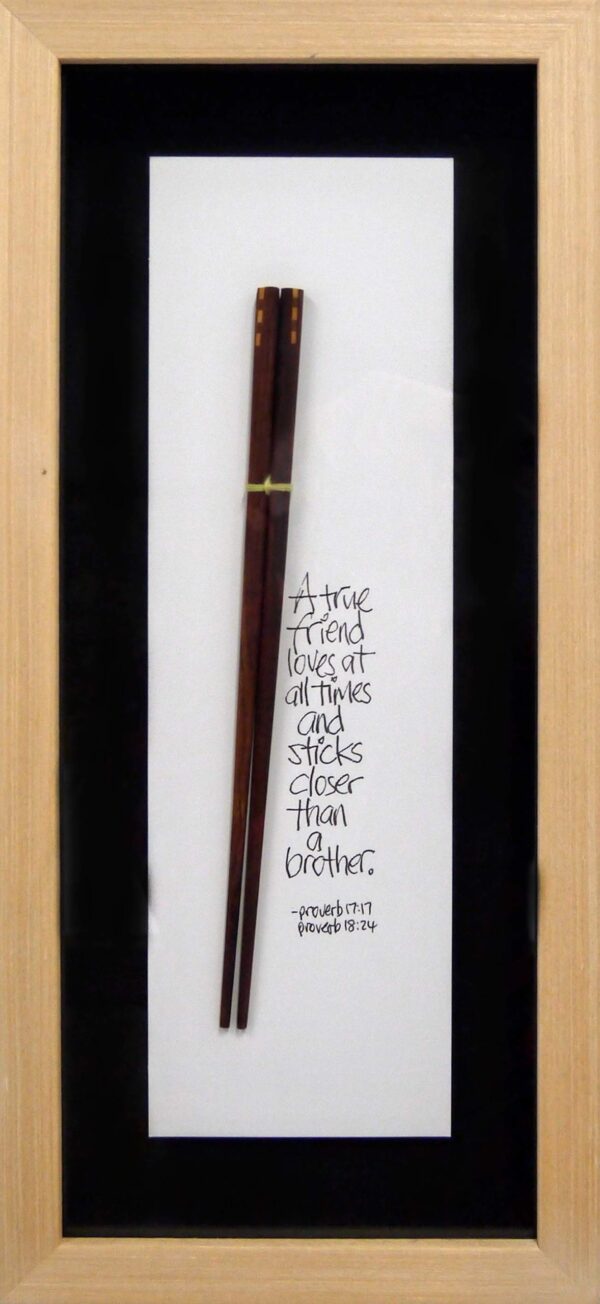 A true
friend
loves at
all times
and
sticks
closer
than
a
brother.
-proverb 17:17
proverb 18:24